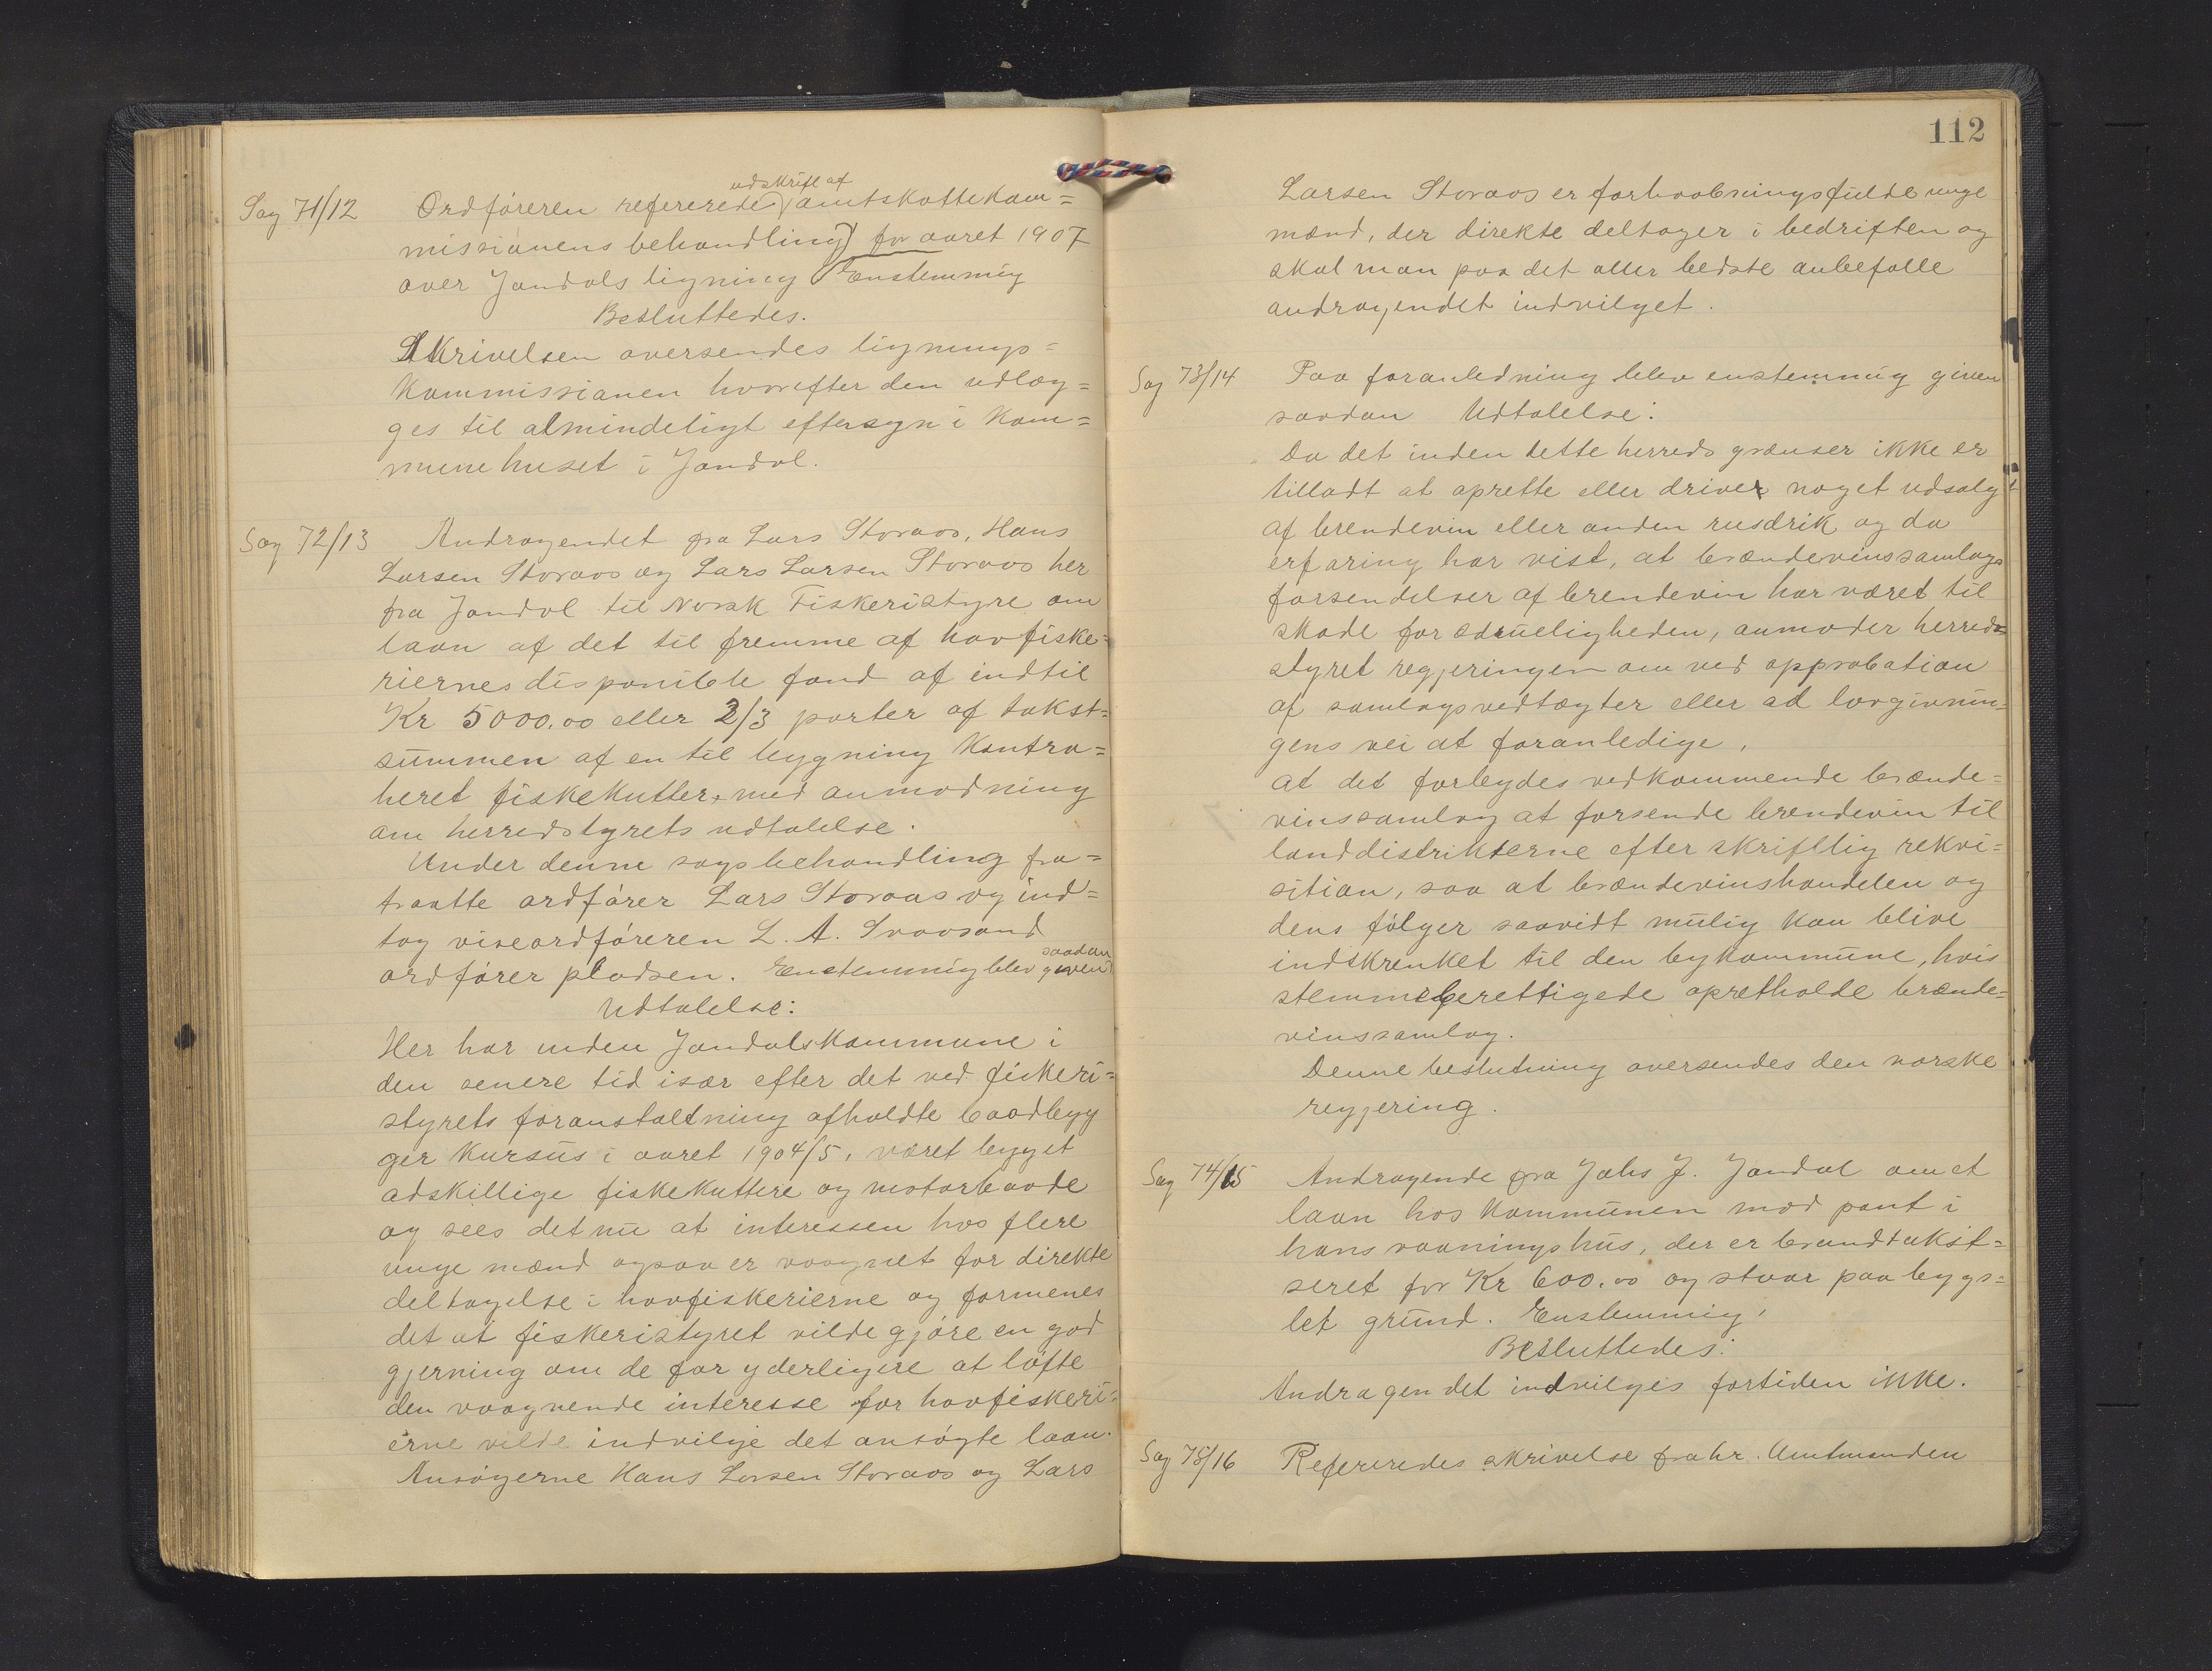 Sag 71/12 Ordføreren refererede udskrift af amtskattekom=
missionens behandling for aaret 1907
over Jondals ligning Enstemmig
Besluttedes.
Skrivelsen oversendes lignings=
kommissionen hvorefter den udlæg=
ges til almindeligt eftersyn i kom=
munehuset i Jondal.
Sag 72/13 Andragendet fra Lars Storaas, Hans
Larsen Storaas og Lars Larsen Storaas her
fra Jondal til Norsk Fiskeristyre om
laan af det til fremme af havfiske=
riernes disponible fond af indtil
Kr 5000.00 eller 2/3 parter af takst=
summen af en til bygning kontra=
heret fiskekutter, med anmodning
om herredstyrets udtalelse.
Under denne sags behandling fra=
traatte ordfører Lars Storaas og ind=
tog viseordføreren L. A. Svaasand
ordfører pladsen. Enstemmig blev saadan given
Udtalelse:
Her har inden Jondals kommune i
den senere tid især efter det ved fiskeri=
styrets foranstaltning afholdte baadbyg
ger kursus i aaret 1904/5, været bygget
adskillige fiskekuttere og motorbaade
og sees det nu at interessen hos flere
unge mænd ogsaa er vaagnet for direkte
deltagelse i havfiskerierne og formenes
det at fiskeristyret vilde gjøre en god
gjerning om de for yderligere at løfte
den vaagnende interesse for havfiskeri=
erne vilde indvilge det ansøgte laan.
Ansøgerne Hans Larsen Storaas og Lars
112
Larsen Storaas er forhaabningsfulde unge
mænd, der direkte deltager i bedriften og
skal man paa det aller bedste anbefalle
andragendet indvilget.
Sag 73/14 Paa foranledning blev enstemmig given
saadan Udtalelse:
Da det inden dette herreds grænser ikke er
tilladt at oprette eller drive noget udsalg
af brendevin eller anden rusdrik og da
erfaring har vist, at brændevinssamlags
forsendelser af brendevin har været til
skade for ædrueligheden, anmoder herreds=
styret regjeringen om ved approbation
af samlagsvedtægter eller ad lovgivnin=
gens vei at foranledige,
at det forbydes vedkommende brænde=
vinssamlag at forsende brendevin til
landdistrikterne efter skriftlig rekvi=
sition, saa at brændevinshandelen og
dens følger saavidt mulig kan blive
indskrenket til den bykommune, hvis
stemmeberettigede opretholde brænde=
vinssamlag.
Denne beslutning oversendes den norske
regjering.
Sag 74/15 Andragende fra Johs J. Jondal om et
laan hos kommunen mod pant i
hans vaaningshus, der er brandtakst=
seret for Kr 600.00 og staar paa bygs=
let grund. Enstemmig,
Besluttedes:
Andragendet indvilges fortiden ikke.
Sag 75/16 Refereredes skrivelse fra hr. Amtmanden